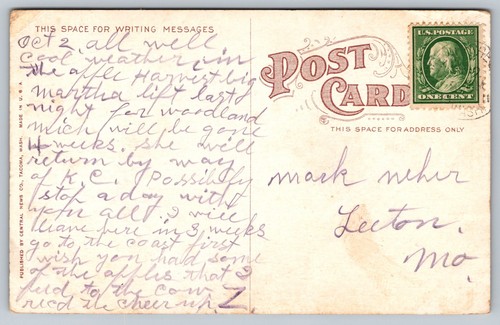 THIS SPACE FOR WRITING MESSAGES
Oct 2, all well
Cool weather, in
the apple Harvest big
martha lift last
night for woodland
mich will be gone
4 weeks. she will
return by way
of K.C. Possibly
stop a day with
you all. I will
leave here in 3 weeks
go to the coast first
wish you had some
of the apples that I
feed to the cow
PUBLISHED BY CENTRAL NEWS CO., TACOMA, WASH. MADE IN U.S.A.
POST
CARD
THIS SPACE FOR ADDRESS ONLY
U.S. POSTAGE
ONE CENT
mark neher
Leeton,
Mo.